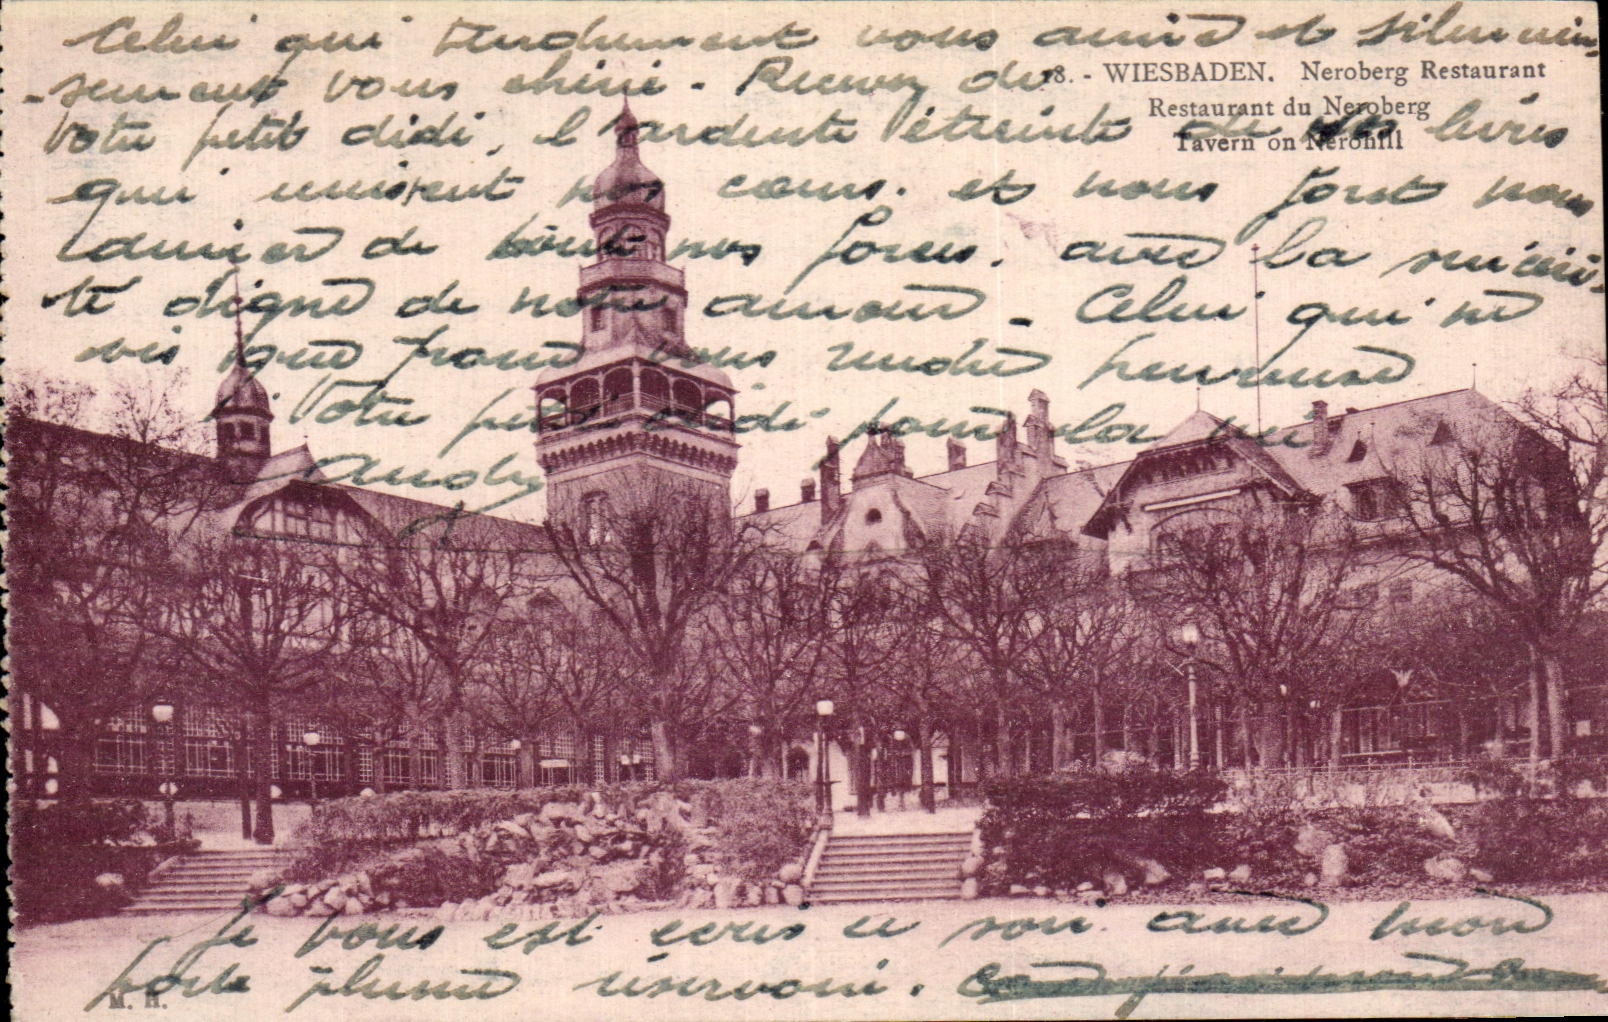 Celui qui tendrement vous aime et silencieu-
-sement vous chérie - Recevez de
18. - WIESBADEN. Neroberg Restaurant
Restaurant du Neroberg
Tavern on Nerohill
Votre petit didi, l'ardente étreinte de lèvres
qui unissent nos cœurs. et nous font nous
aimer de toute nos forces. avec la sincéri-
té digne de notre amour - Celui qui ne
vis que pour vous rendre heureuse
Votre petit didi pour la vie
Je vous est ecris ce soir avec mon
porte plume réservoir.
M. H.